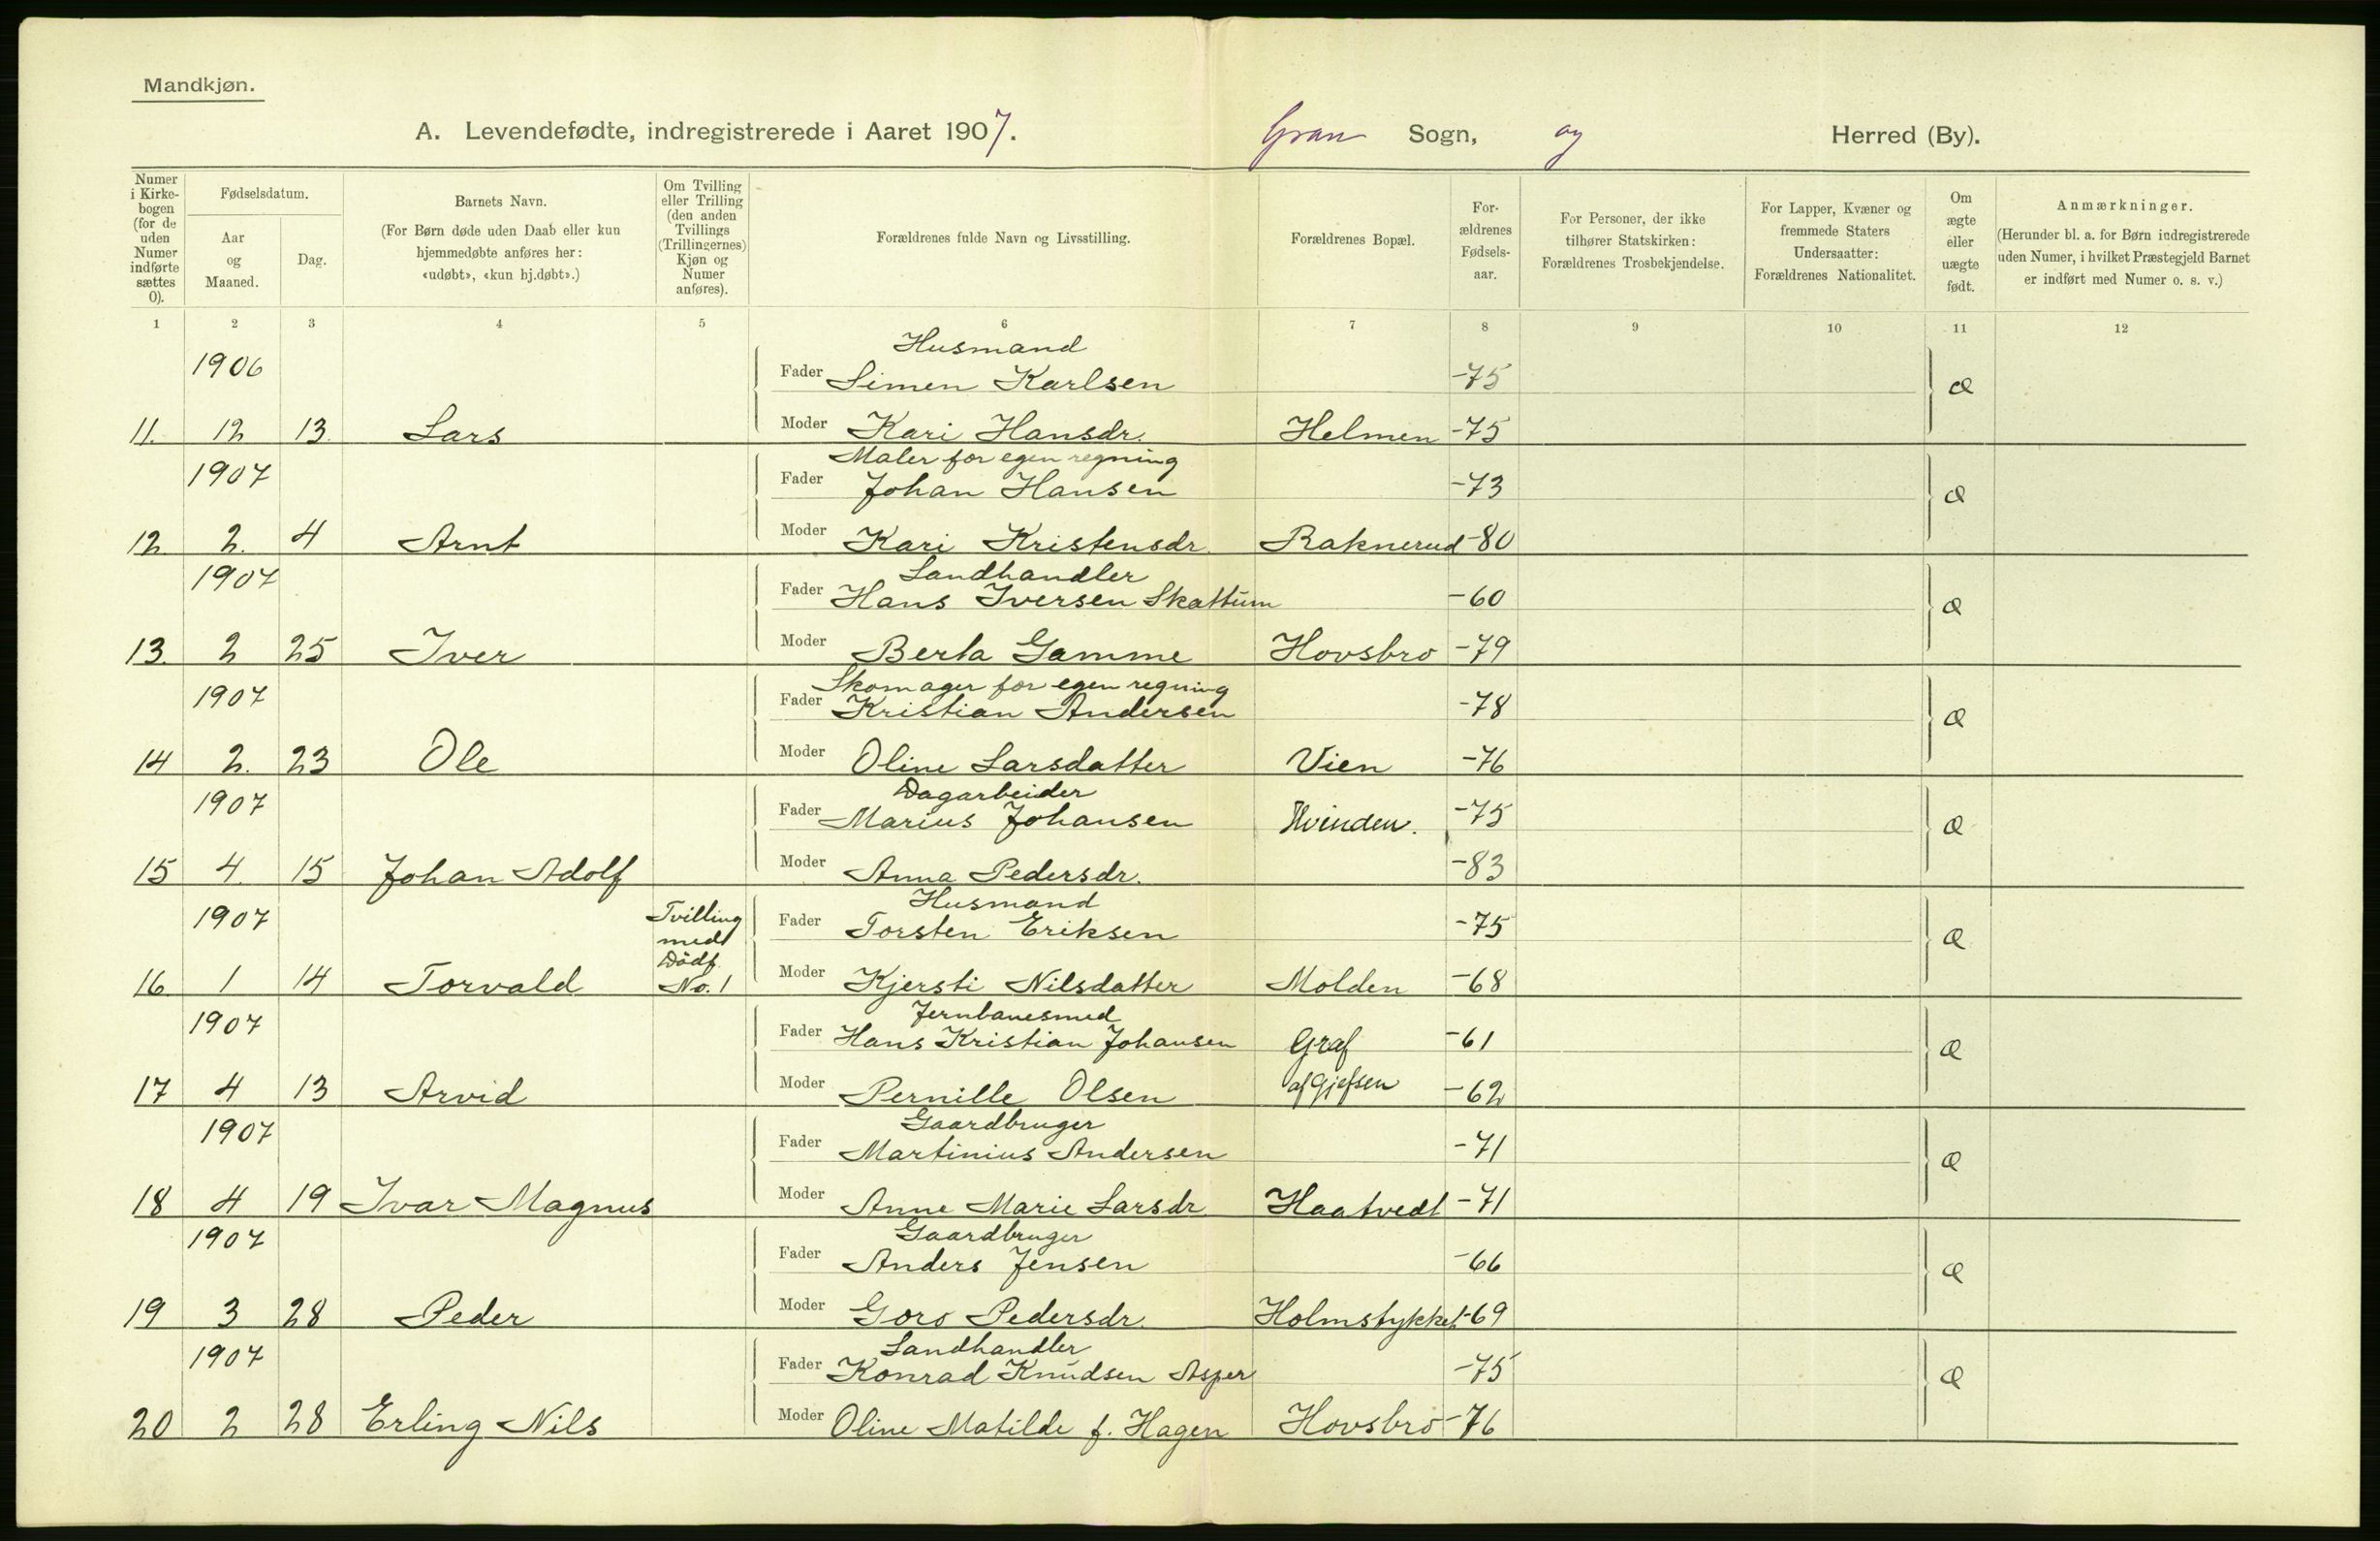 Mandkjøn.
A. Levendefødte, indregistrerede i Aaret 1907. Gran Sogn, og Herred (By).
Numer i Kirkebogen (for de uden Numer indførte sættes 0).
Fødselsdatum.
Aar og Maaned.
Dag.
Barnets Navn.
(For Børn døde uden Daab eller kun hjemmedøbte anføres her: «udøbt», «kun hj.døbt».)
Om Tvilling eller Trilling (den anden Tvillings (Trillingernes) Kjøn og Numer anføres).
Forældrenes fulde Navn og Livsstilling.
Forældrenes Bopæl.
Forældrenes Fødselsaar.
For Personer, der ikke tilhører Statskirken: Forældrenes Trosbekjendelse.
For Lapper, Kvæner og fremmede Staters Undersaatter: Forældrenes Nationalitet.
Om ægte eller uægte født.
Anmærkninger.
(Herunder bl. a. for Børn indregistrerede uden Numer, i hvilket Præstegjeld Barnet er indført med Numer o. s. v.)
1 2 3 4 5 6 7 8 9 10 11 12
Husmand
1906 Fader Simen Karlsen -75 Æ
11. 12 13 Lars Moder Kari Hansdr. Helmen -75
Maler for egen regning
1907 Fader Johan Hansen -73 Æ
12 2. 4 Arnt Moder Kari Kristensdr. Raknerud -80
Landhandler
1907 Fader Hans Iversen Skattum -60 Æ
13. 2 25 Iver Moder Berta Gamme Hovsbro -79
Skomager for egen regning
1907 Fader Kristian Andersen -78 Æ
14 2. 23 Ole Moder Oline Larsdatter Vien -76
Dagarbeider
1907 Fader Marius Johansen Hvinden. -75 Æ
15 4. 15 Johan Adolf Moder Anna Pedersdr. -83
Husmand
1907 Tvilling med Dödf. No. 1 Fader Torsten Eriksen -75 Æ
16 1 14 Torvald Moder Kjersti Nilsdatter Molden -68
Jernbanesmed
1907 Fader Hans Kristian Johansen Graf -61 Æ
17 4 13 Arvid Moder Pernille Olsen af Gjefsen -62
Gaardbruger
1907 Fader Martinius Andersen -71 Æ
18 4 19 Ivar Magnus Moder Anne Marie Larsdr. Haatvedt -71
Gaardbruger
1907 Fader Anders Jensen -66 Æ
19 3 28 Peder Moder Goro Pedersdr. Holmstykket -69
Landhandler
1907 Fader Konrad Knudsen Asper -75 Æ
20 2 28 Erling Nils Moder Oline Matilde f. Hagen Hovsbro -76